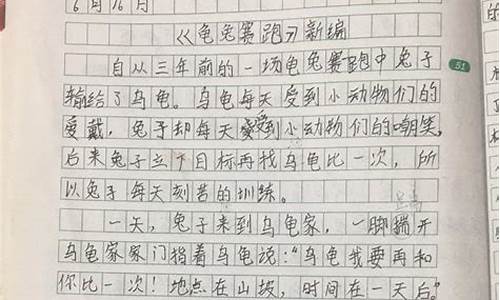 6月16日
《龟兔赛跑》新编
自从三年前的一场龟兔赛跑中兔子
输给了乌龟。乌龟每天受到小动物们的
爱戴，兔子却每天受到小动物们的嘲笑，
后来兔子立下目标再找乌龟比一次，所
以兔子每天刻苦的训练。
一天，兔子来到乌龟家，一脚踹开
乌龟家家门指着乌龟说：“乌龟我要再和
你比一次！地点在山坡，时间在一天后”
51
的